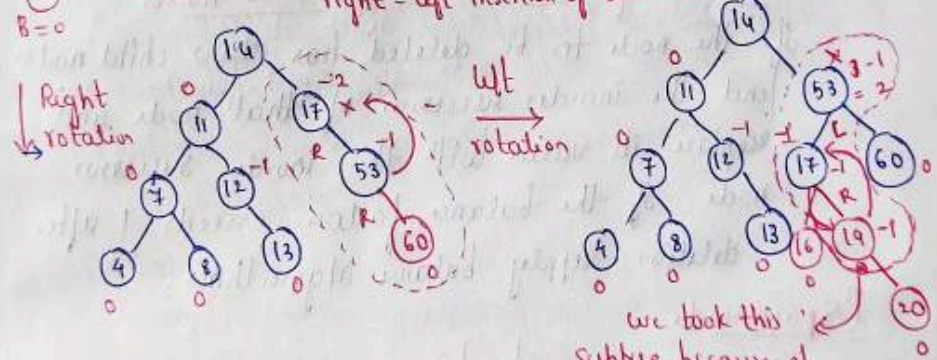 B = 0
right - left insertion of
Right
rotation
14
0
11
-2
17
x
0
7
-1
12
R
53
-1
4
8
13
R
60
0
0
0
0
left
rotation
14
0
11
x
53
3 - 1
= 2
0
7
-1
12
-1
17
L
-1
60
0
R
4
8
13
16
19
-1
0
0
0
0
20
0
we took this
subtree because of